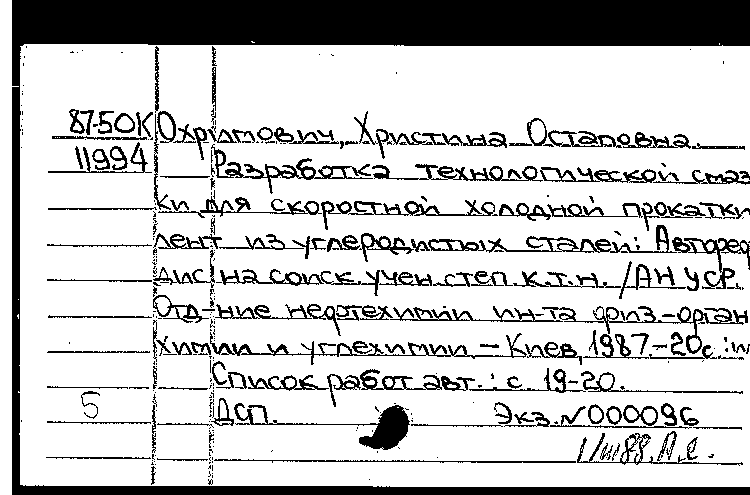 87-50К Охримович, Христина Остаповна.
11994 Разработка технологической смаз
ки для скоростной холодной прокатки
лент из углеродистых сталей: Автореф
дис на соиск. учен. степ. к.т.н. /АН УСР.
Отд-ние нефтехимии ин-та физ-орган
химии и углехимии – Киев, 1987.–20с
Список работ авт.: с. 19-20.
5 ДСП. Экз. N000096